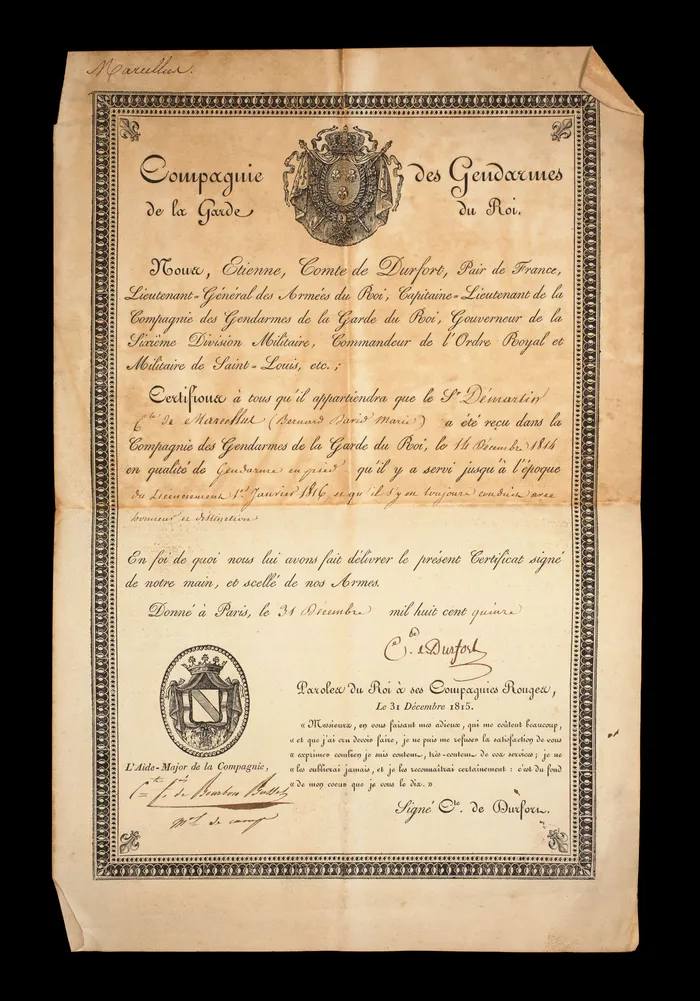 Marcellus.
Compagnie des Gendarmes
de la Garde du Roi.
Nous, Etienne, Comte de Durfort, Pair de France,
Lieutenant-Général des Armées du Roi, Capitaine-Lieutenant de la
Compagnie des Gendarmes de la Garde du Roi, Gouverneur de la
Sixième Division Militaire, Commandeur de l'Ordre Royal et
Militaire de Saint-Louis, etc.;
Certifions à tous qu'il appartiendra que le Sr Démartin
Cte de Marcellus (Bernard David Marie) a été reçu dans la
Compagnie des Gendarmes de la Garde du Roi, le 14 Décembre 1814
en qualité de Gendarme en pied qu'il y a servi jusqu'à l'époque
du Licenciement 1er Janvier 1816 et qu'il s'y est toujours conduit avec
honneur et distinction
En foi de quoi nous lui avons fait délivrer le présent Certificat signé
de notre main, et scellé de nos Armes.
Donné à Paris, le 31 Décembre mil huit cent quinze
Cte e Durfort
Paroles du Roi à ses Compagnies Rouges,
Le 31 Décembre 1815.
« Messieurs, en vous faisant mes adieux, qui me coûtent beaucoup,
« et que j'ai cru devoir faire, je ne puis me refuser la satisfaction de vous
« exprimer combien je suis content, très-content de vos services; je ne
« les oublierai jamais, et je les reconnaîtrai certainement : c'est du fond
« de mon cœur que je vous le dis. »
Signé Cte. de Durfort.
L'Aide-Major de la Compagnie,
Cte de Bourbon Busset
Mal de camp